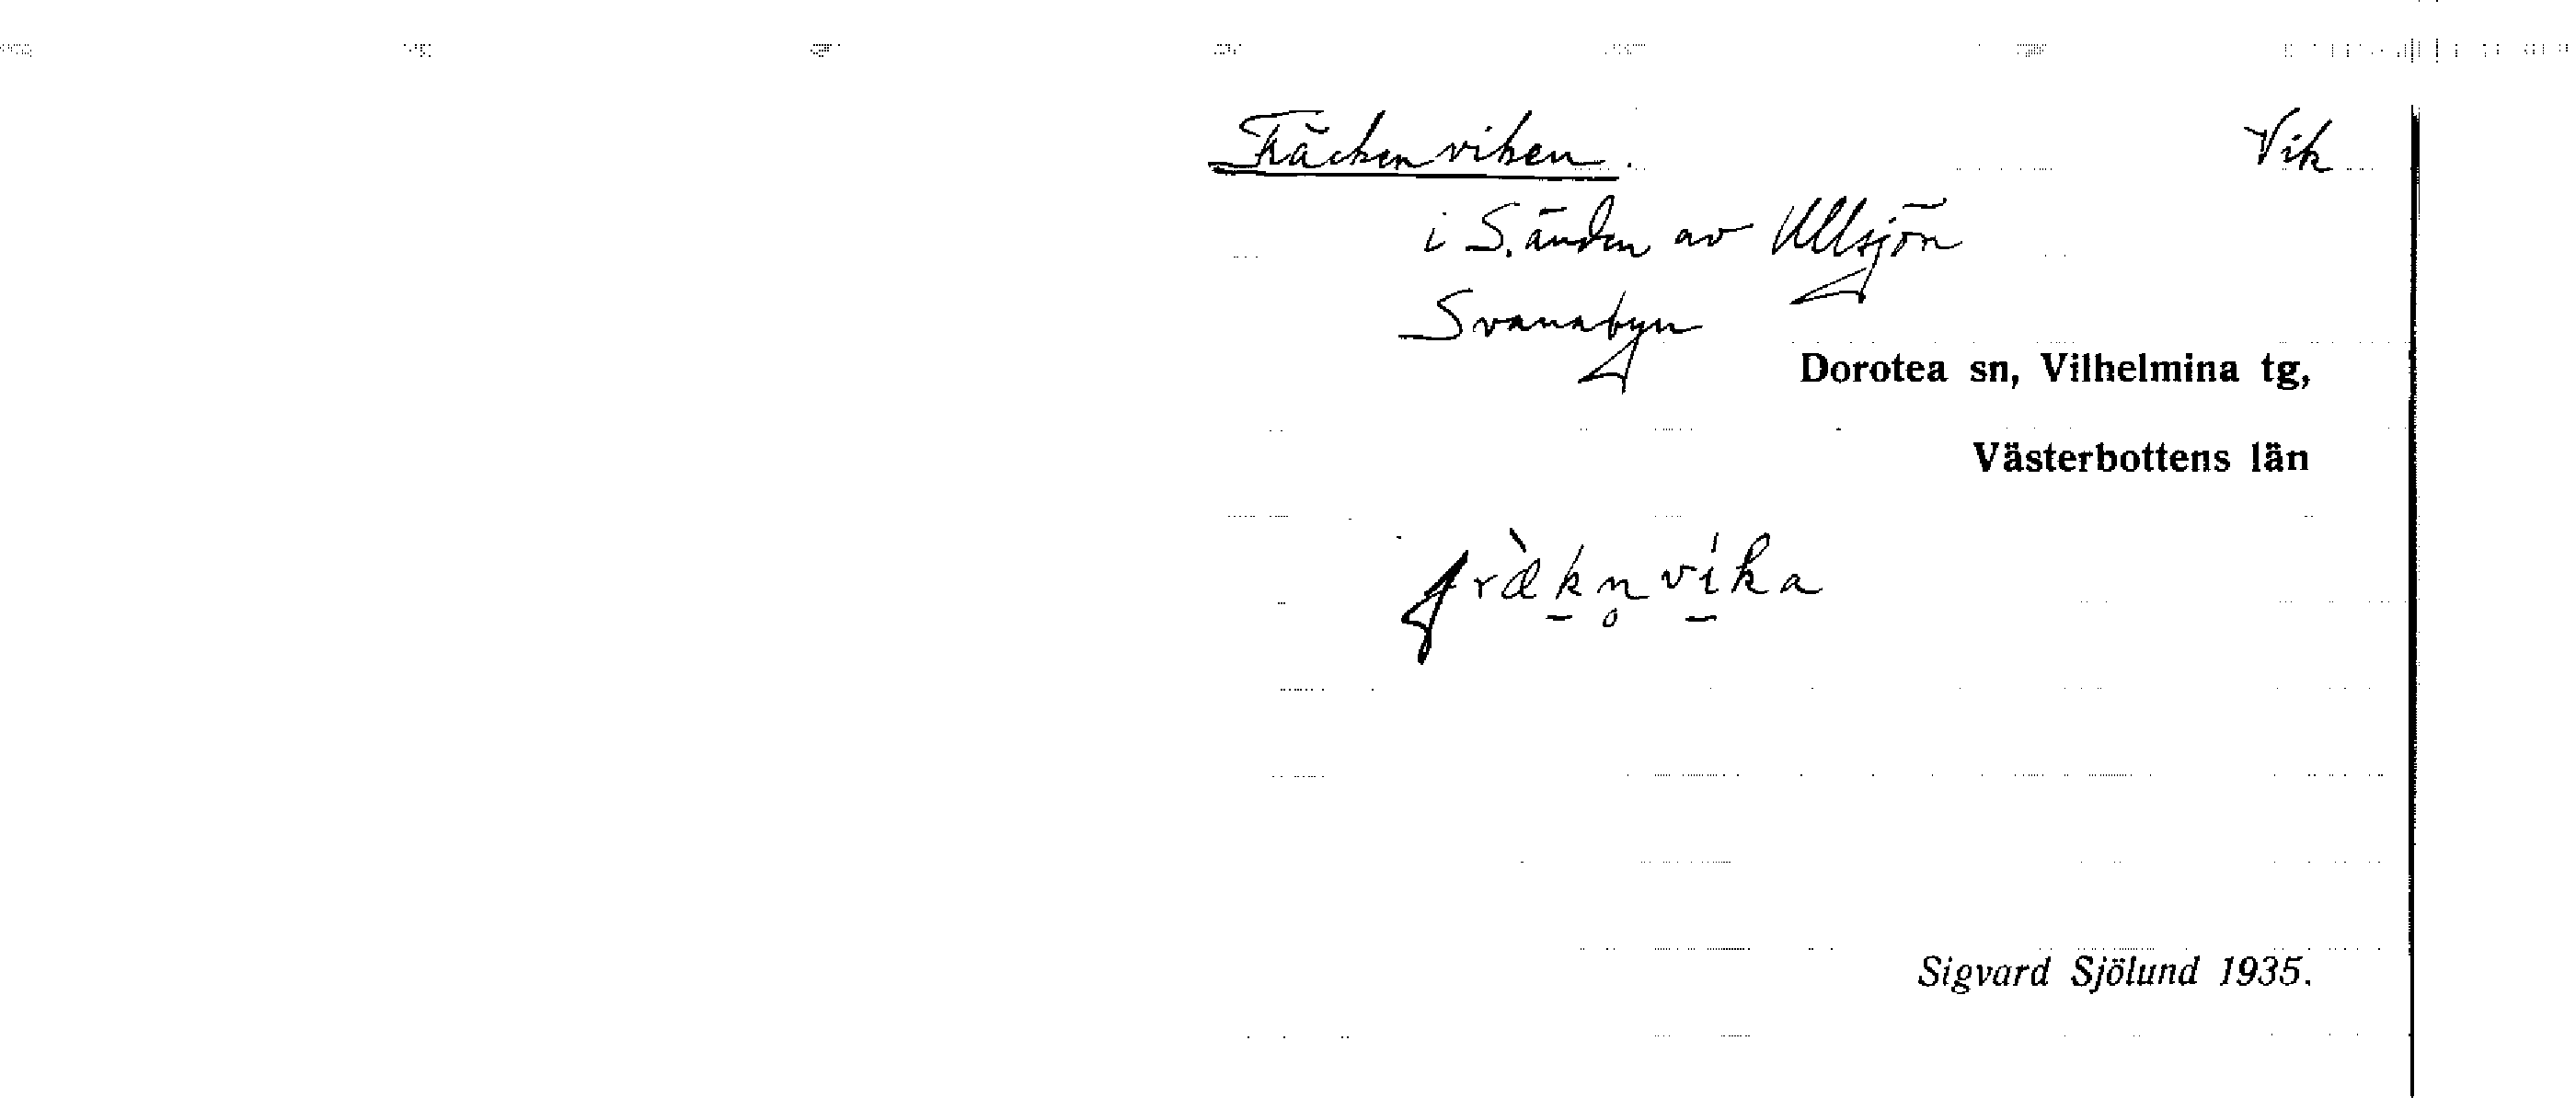 Fräckenviken. Vik
i S. änden av Ullsjön
Svanabyn
Dorotea sn, Vilhelmina tg,
Västerbottens län
fræ̀k̠n̥ví̠ka
Sigvard Sjölund 1935.